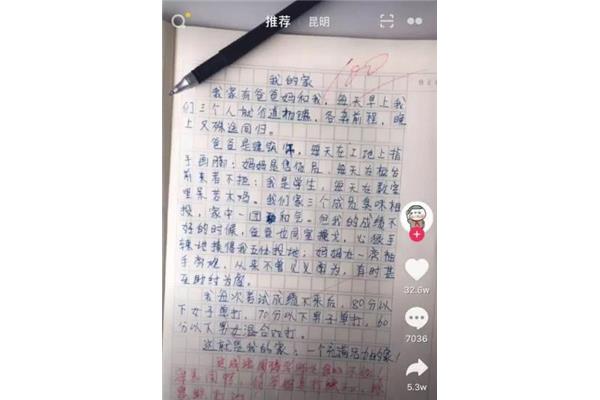 推荐 昆明
我的家
我家有爸爸妈和我，每天早上我
们三个人就分道扬镳，各奔前程，晚
上又殊途同归。
爸爸是建筑师，每天在工地上指
手画脚；妈妈是售货员，每天在柜台
前来者不拒；我是学生，每天在教室
里呆若木鸡。我们家三个成员臭味相
投，家中一团和气。但我的成绩不
好的时候，爸爸也同室操戈，心狠手
辣地揍得我五体投地；妈妈在一旁袖
手旁观，从来不曾见义勇为，有时甚
至助纣为虐。
我每次考试成绩下来后，80分以
下女子单打，70分以下男子单打，60
分以下男女混合双打。
这就是我的家，一个充满活力的家！
32.6w
7036
5.3w